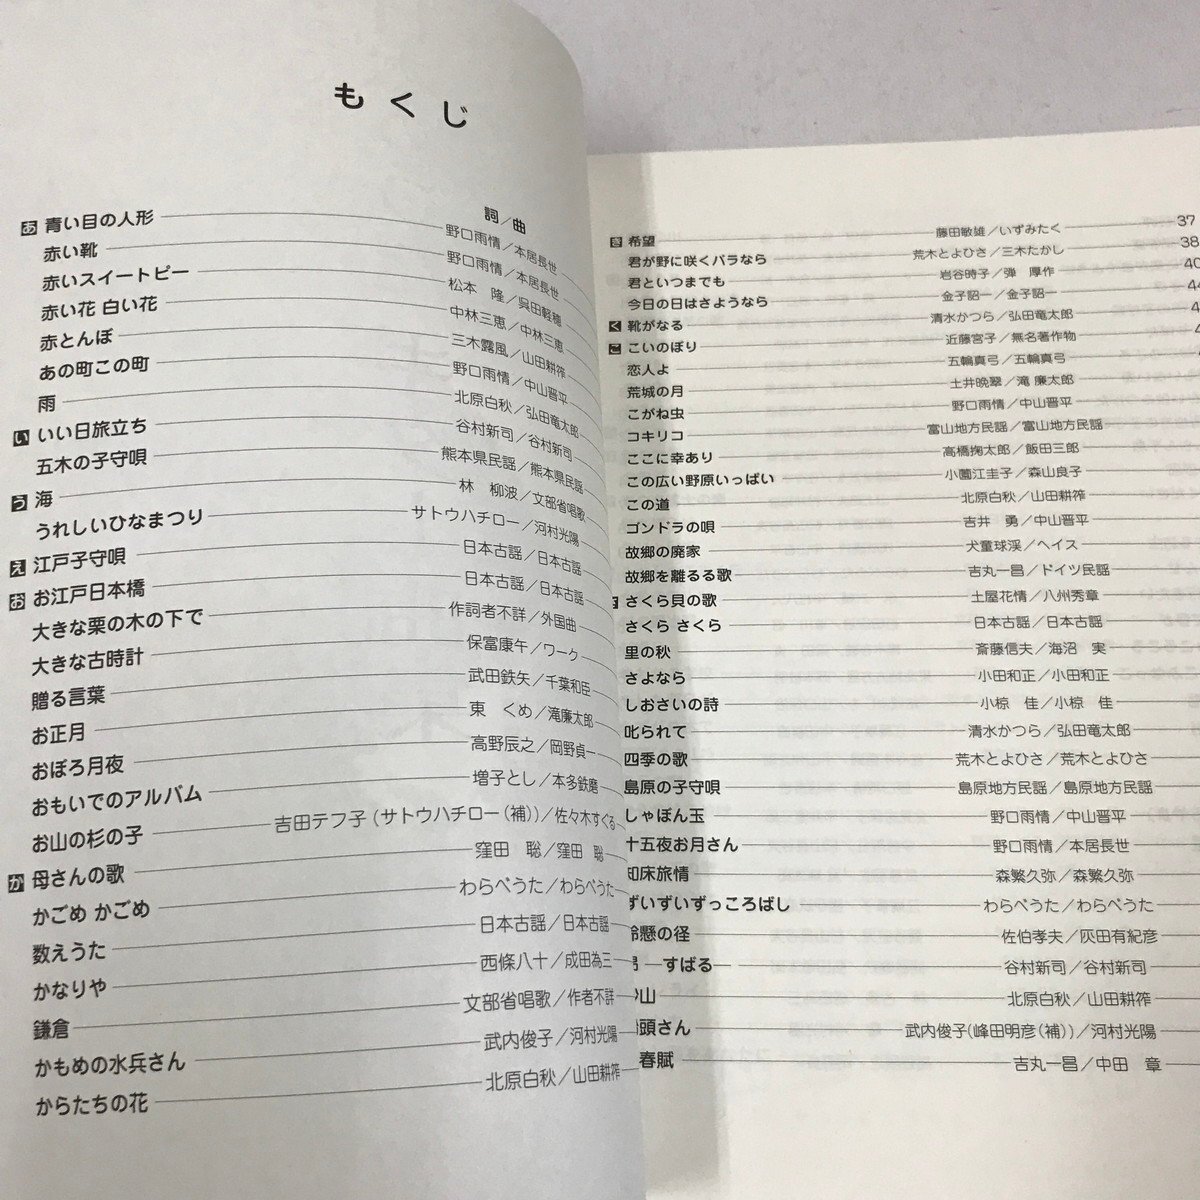 もくじ
詞／曲
あ 青い目の人形 野口雨情／本居長世
赤い靴 野口雨情／本居長世
赤いスイートピー 松本　隆／呉田軽穂
赤い花 白い花 中林三恵／中林三恵
赤とんぼ 三木露風／山田耕筰
あの町この町 野口雨情／中山晋平
雨 北原白秋／弘田竜太郎
い いい日旅立ち 谷村新司／谷村新司
五木の子守唄 熊本県民謡／熊本県民謡
う 海 林　柳波／文部省唱歌
うれしいひなまつり サトウハチロー／河村光陽
え 江戸子守唄 日本古謡／日本古謡
お お江戸日本橋 日本古謡／日本古謡
大きな栗の木の下で 作詞者不詳／外国曲
大きな古時計 保富康午／ワーク
贈る言葉 武田鉄矢／千葉和臣
お正月 東　くめ／滝廉太郎
おぼろ月夜 高野辰之／岡野貞一
おもいでのアルバム 増子とし／本多鉄磨
お山の杉の子 吉田テフ子（サトウハチロー（補））／佐々木すぐる
か 母さんの歌 窪田　聡／窪田　聡
かごめ かごめ わらべうた／わらべうた
数えうた 日本古謡／日本古謡
かなりや 西條八十／成田為三
鎌倉 文部省唱歌／作者不詳
かもめの水兵さん 武内俊子／河村光陽
からたちの花 北原白秋／山田耕筰
き 希望 藤田敏雄／いずみたく 37
君が野に咲くバラなら 荒木とよひさ／三木たかし 38
君といつまでも 岩谷時子／弾　厚作 40
今日の日はさようなら 金子詔一／金子詔一 44
く 靴がなる 清水かつら／弘田竜太郎
こ こいのぼり 近藤宮子／無名著作物
恋人よ 五輪真弓／五輪真弓
荒城の月 土井晩翠／滝 廉太郎
こがね虫 野口雨情／中山晋平
コキリコ 富山地方民謡／富山地方民謡
ここに幸あり 高橋掬太郎／飯田三郎
この広い野原いっぱい 小薗江圭子／森山良子
この道 北原白秋／山田耕筰
ゴンドラの唄 吉井　勇／中山晋平
故郷の廃家 犬童球渓／ヘイス
故郷を離るる歌 吉丸一昌／ドイツ民謡
さくら貝の歌 土屋花情／八州秀章
さくら さくら 日本古謡／日本古謡
里の秋 斎藤信夫／海沼　実
さよなら 小田和正／小田和正
しおさいの詩 小椋　佳／小椋　佳
叱られて 清水かつら／弘田竜太郎
四季の歌 荒木とよひさ／荒木とよひさ
島原の子守唄 島原地方民謡／島原地方民謡
しゃぼん玉 野口雨情／中山晋平
十五夜お月さん 野口雨情／本居長世
知床旅情 森繁久弥／森繁久弥
ずいずいずっころばし わらべうた／わらべうた
鈴懸の径 佐伯孝夫／灰田有紀彦
昴 ―すばる― 谷村新司／谷村新司
山 北原白秋／山田耕筰
頭さん 武内俊子（峰田明彦（補））／河村光陽
春賦 吉丸一昌／中田　章